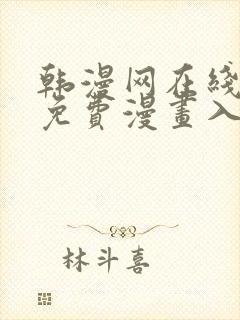 韩漫网在线
免費漫畫入
林斗喜